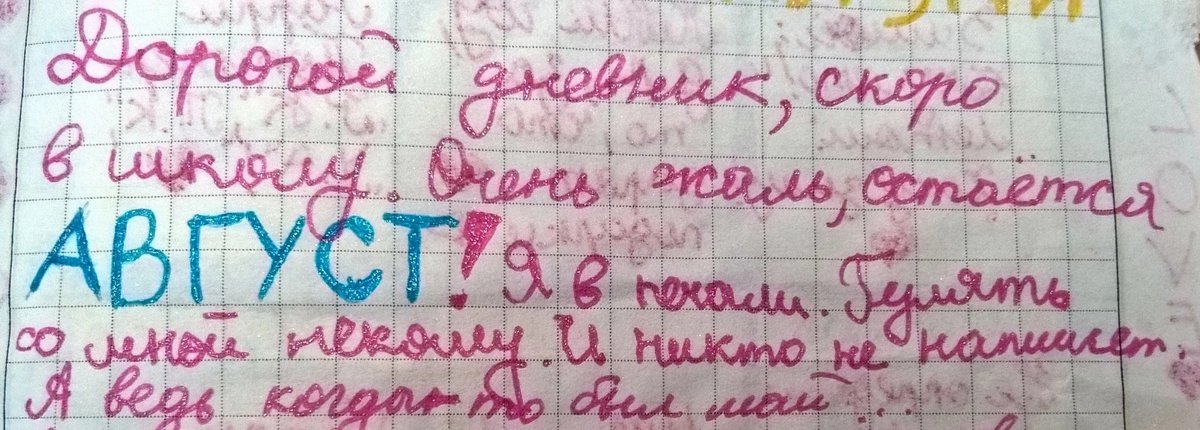 Дорогой дневник, скоро
в школу. Очень жаль, остаётся
АВГУСТ! Я в печали. Гулять
со мной некому. И никто не напишет.
А ведь когда-то был май...